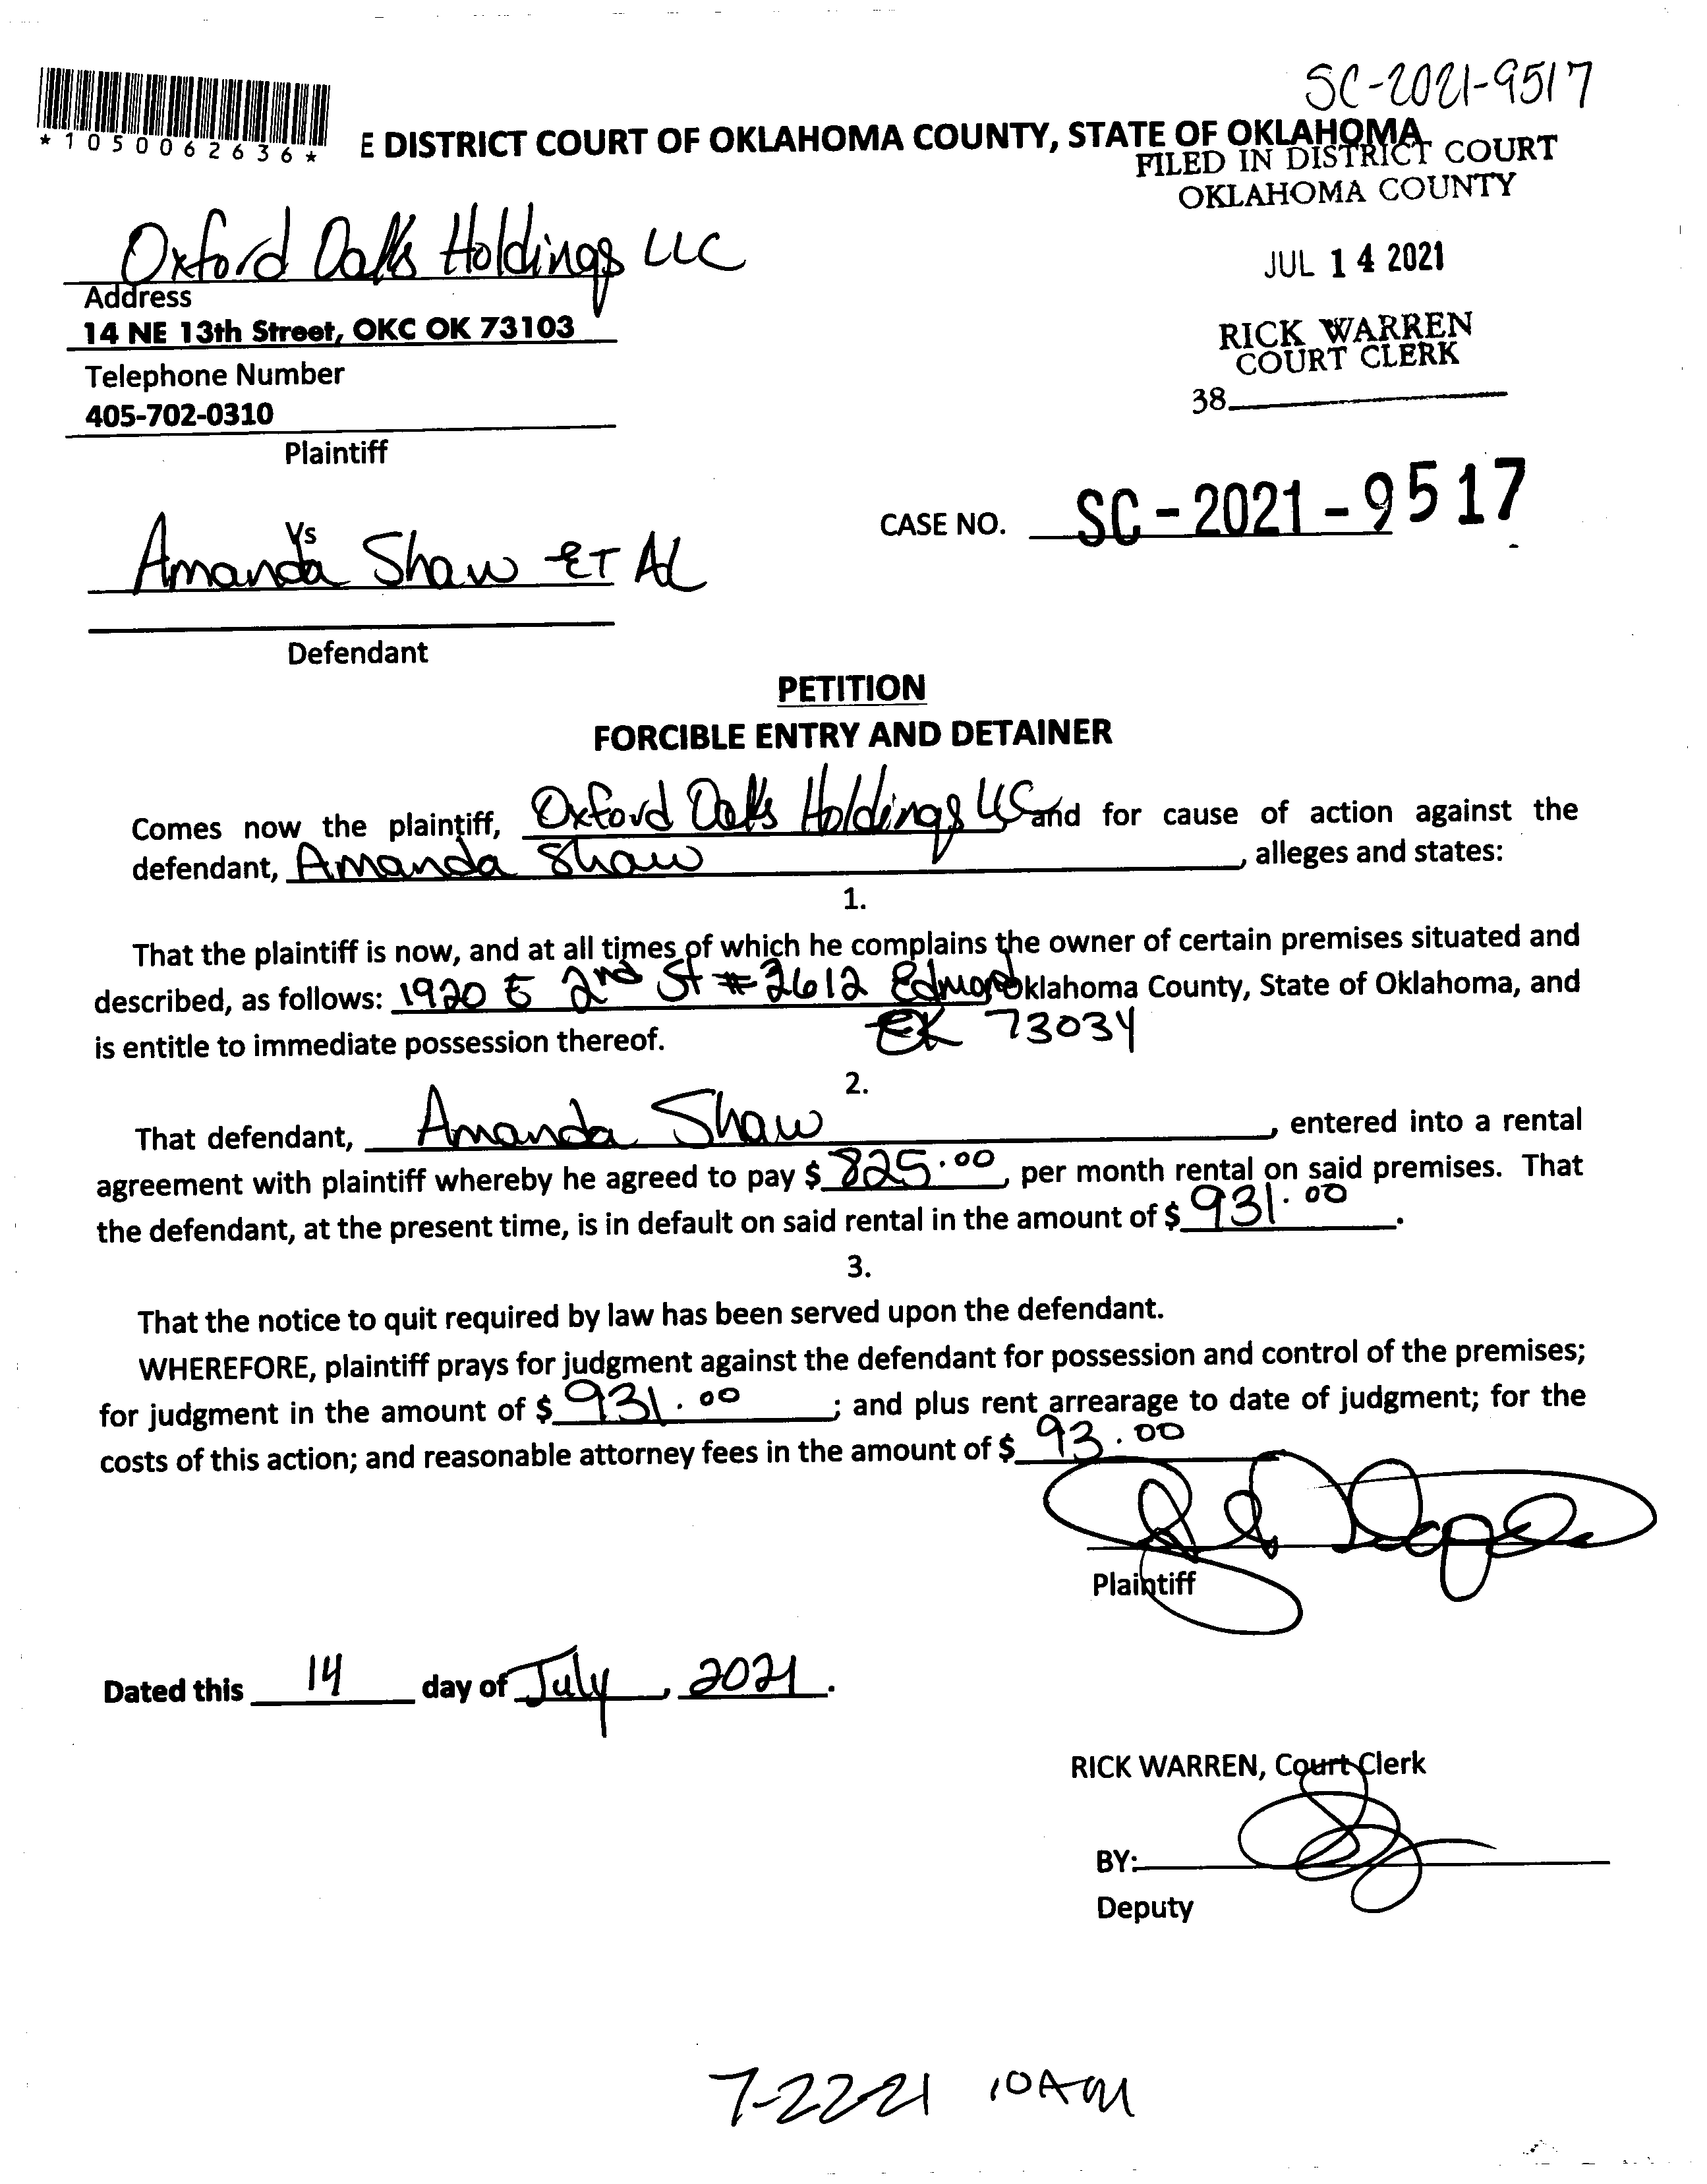 SC-2021-9517
*1050062636*
E DISTRICT COURT OF OKLAHOMA COUNTY, STATE OF OKLAHOMA
FILED IN DISTRICT COURT
OKLAHOMA COUNTY
Oxford Oaks Holdings LLC
JUL 14 2021
Address
14 NE 13th Street, OKC OK 73103
RICK WARREN
COURT CLERK
Telephone Number
405-702-0310
38
Plaintiff
Vs
CASE NO. SC-2021-9517
Amanda Shaw ET AL
Defendant
PETITION
FORCIBLE ENTRY AND DETAINER
Comes now the plaintiff, Oxford Oaks Holdings LLC and for cause of action against the
defendant, Amanda Shaw, alleges and states:
1.
That the plaintiff is now, and at all times of which he complains the owner of certain premises situated and
described, as follows: 1920 E 2nd St #2612 Edmond Oklahoma County, State of Oklahoma, and
is entitle to immediate possession thereof. 73034
2.
That defendant, Amanda Shaw, entered into a rental
agreement with plaintiff whereby he agreed to pay $ 825.00, per month rental on said premises. That
the defendant, at the present time, is in default on said rental in the amount of $ 931.00.
3.
That the notice to quit required by law has been served upon the defendant.
WHEREFORE, plaintiff prays for judgment against the defendant for possession and control of the premises;
for judgment in the amount of $ 931.00; and plus rent arrearage to date of judgment; for the
costs of this action; and reasonable attorney fees in the amount of $ 93.00
Plaintiff
Dated this 14 day of July, 2021.
RICK WARREN, Court Clerk
BY:
Deputy
7-22-21 10AM